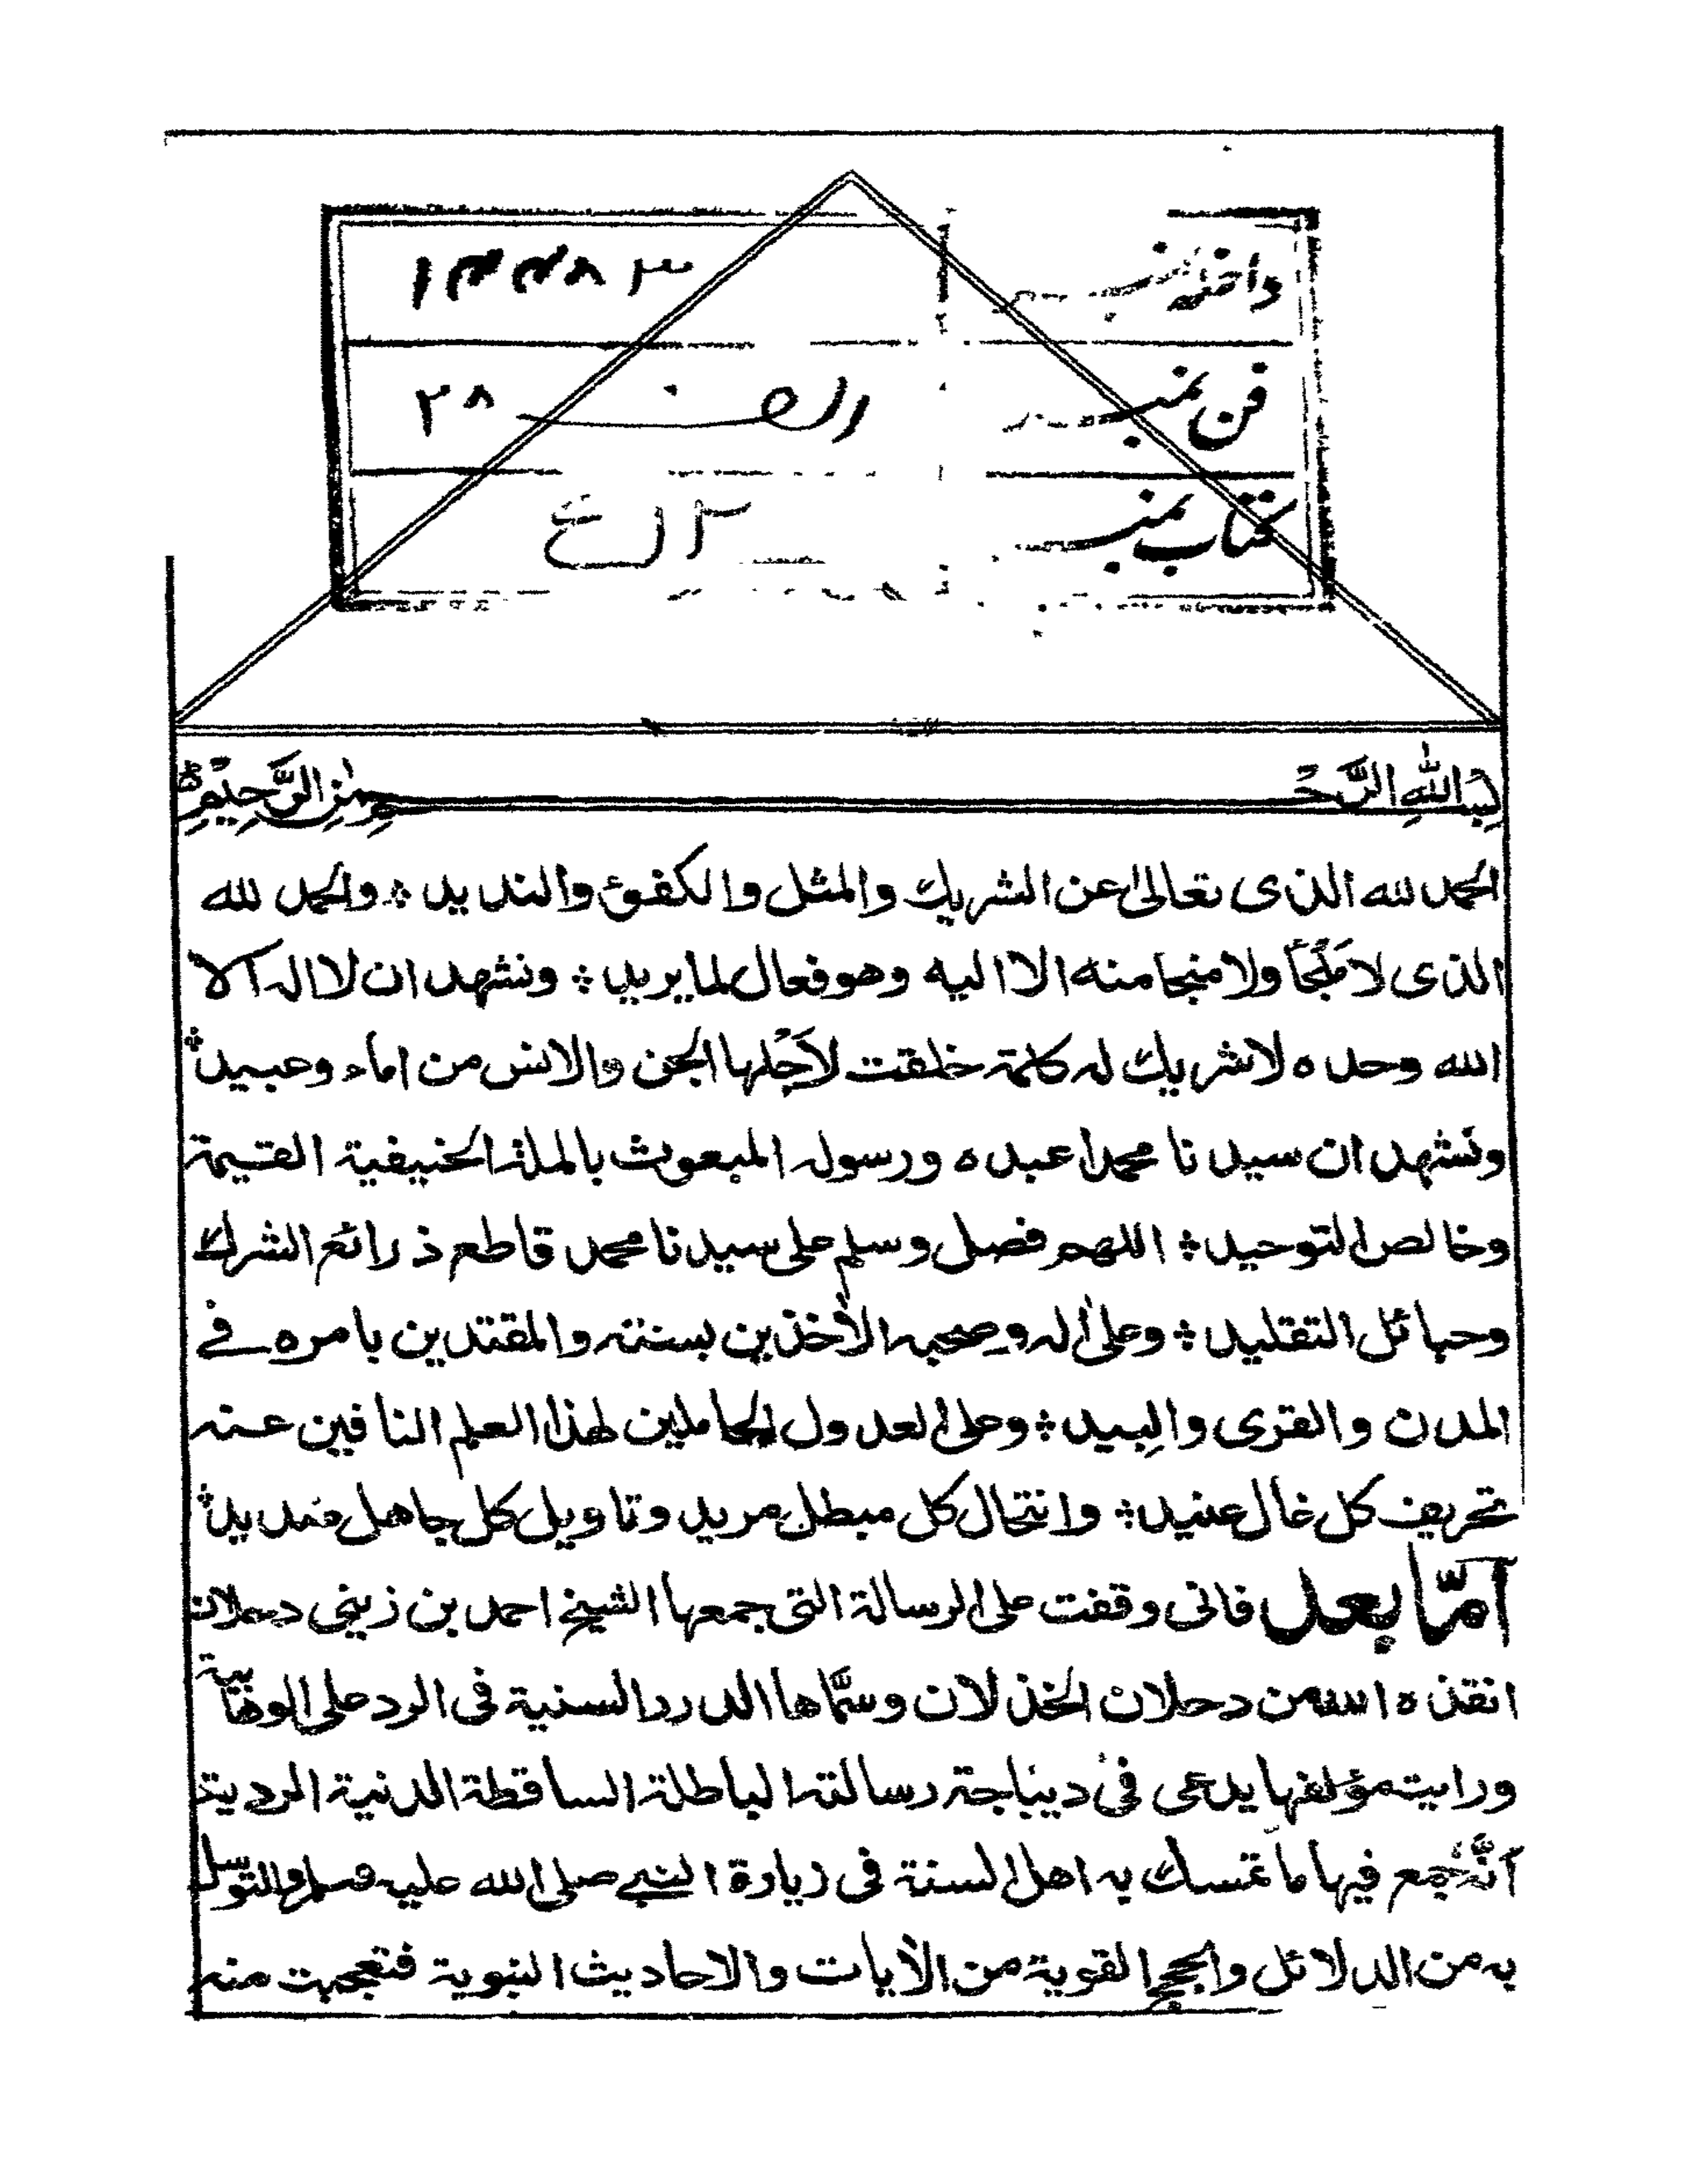 داخلہ نمبر
فن نمبر ۲۸
کتاب نمبر
بسم اللهِ الرَّحْمٰنِ الرَّحِيْمِ
الحمد لله الذى تعالىٰ عن الشريك والمثل والكفؤ والنديد ؞ والحمد لله
الذى لا مَلْجَأَ ولا منجا منه الا اليه وهو فعال لما يريد ؞ ونشهد ان لا اله الا
الله وحده لا شريك له كلمة خلقت لاَجْلها الجن والانس من اماء وعبيد ؞
ونشهد ان سيدنا محمدا عبده ورسوله المبعوث بالملة الحنيفية القيمة
وخالص التوحيد ؞ اللهم فصل وسلم على سيدنا محمد قاطع ذرائع الشرك
وحبائل التقليد ؞ وعلىٰ اٰله وصحبه الاٰخذين بسنته والمقتدين بامره فے
المدن والقرى والبِيد ؞ وعلى العدول الحاملين لهذا العلم النافين عنه
تحريف كل غال عنيد ؞ وانتحال كل مبطل مريد وتاويل كل جاهل
اَمّا بعد فانى وقفت على الرسالة التى جمعها الشيخ احمد بن زينى دحلان
انقذه الله من دحلان الخذلان وسمّاها الدرر السنية فى الرد على الوهابية
ورايت مؤلفها يدعى فى ديباجة رسالته الباطلة الساقطة الدنية الردية
اَنَّهٗ جمع فيها ما تمسك به اهل السنة فى زيارة النبے صلى الله عليه وسلم والتوسل
به من الدلائل والحجج القوية من الاٰيات والاحاديث النبوية فتعجبت منه